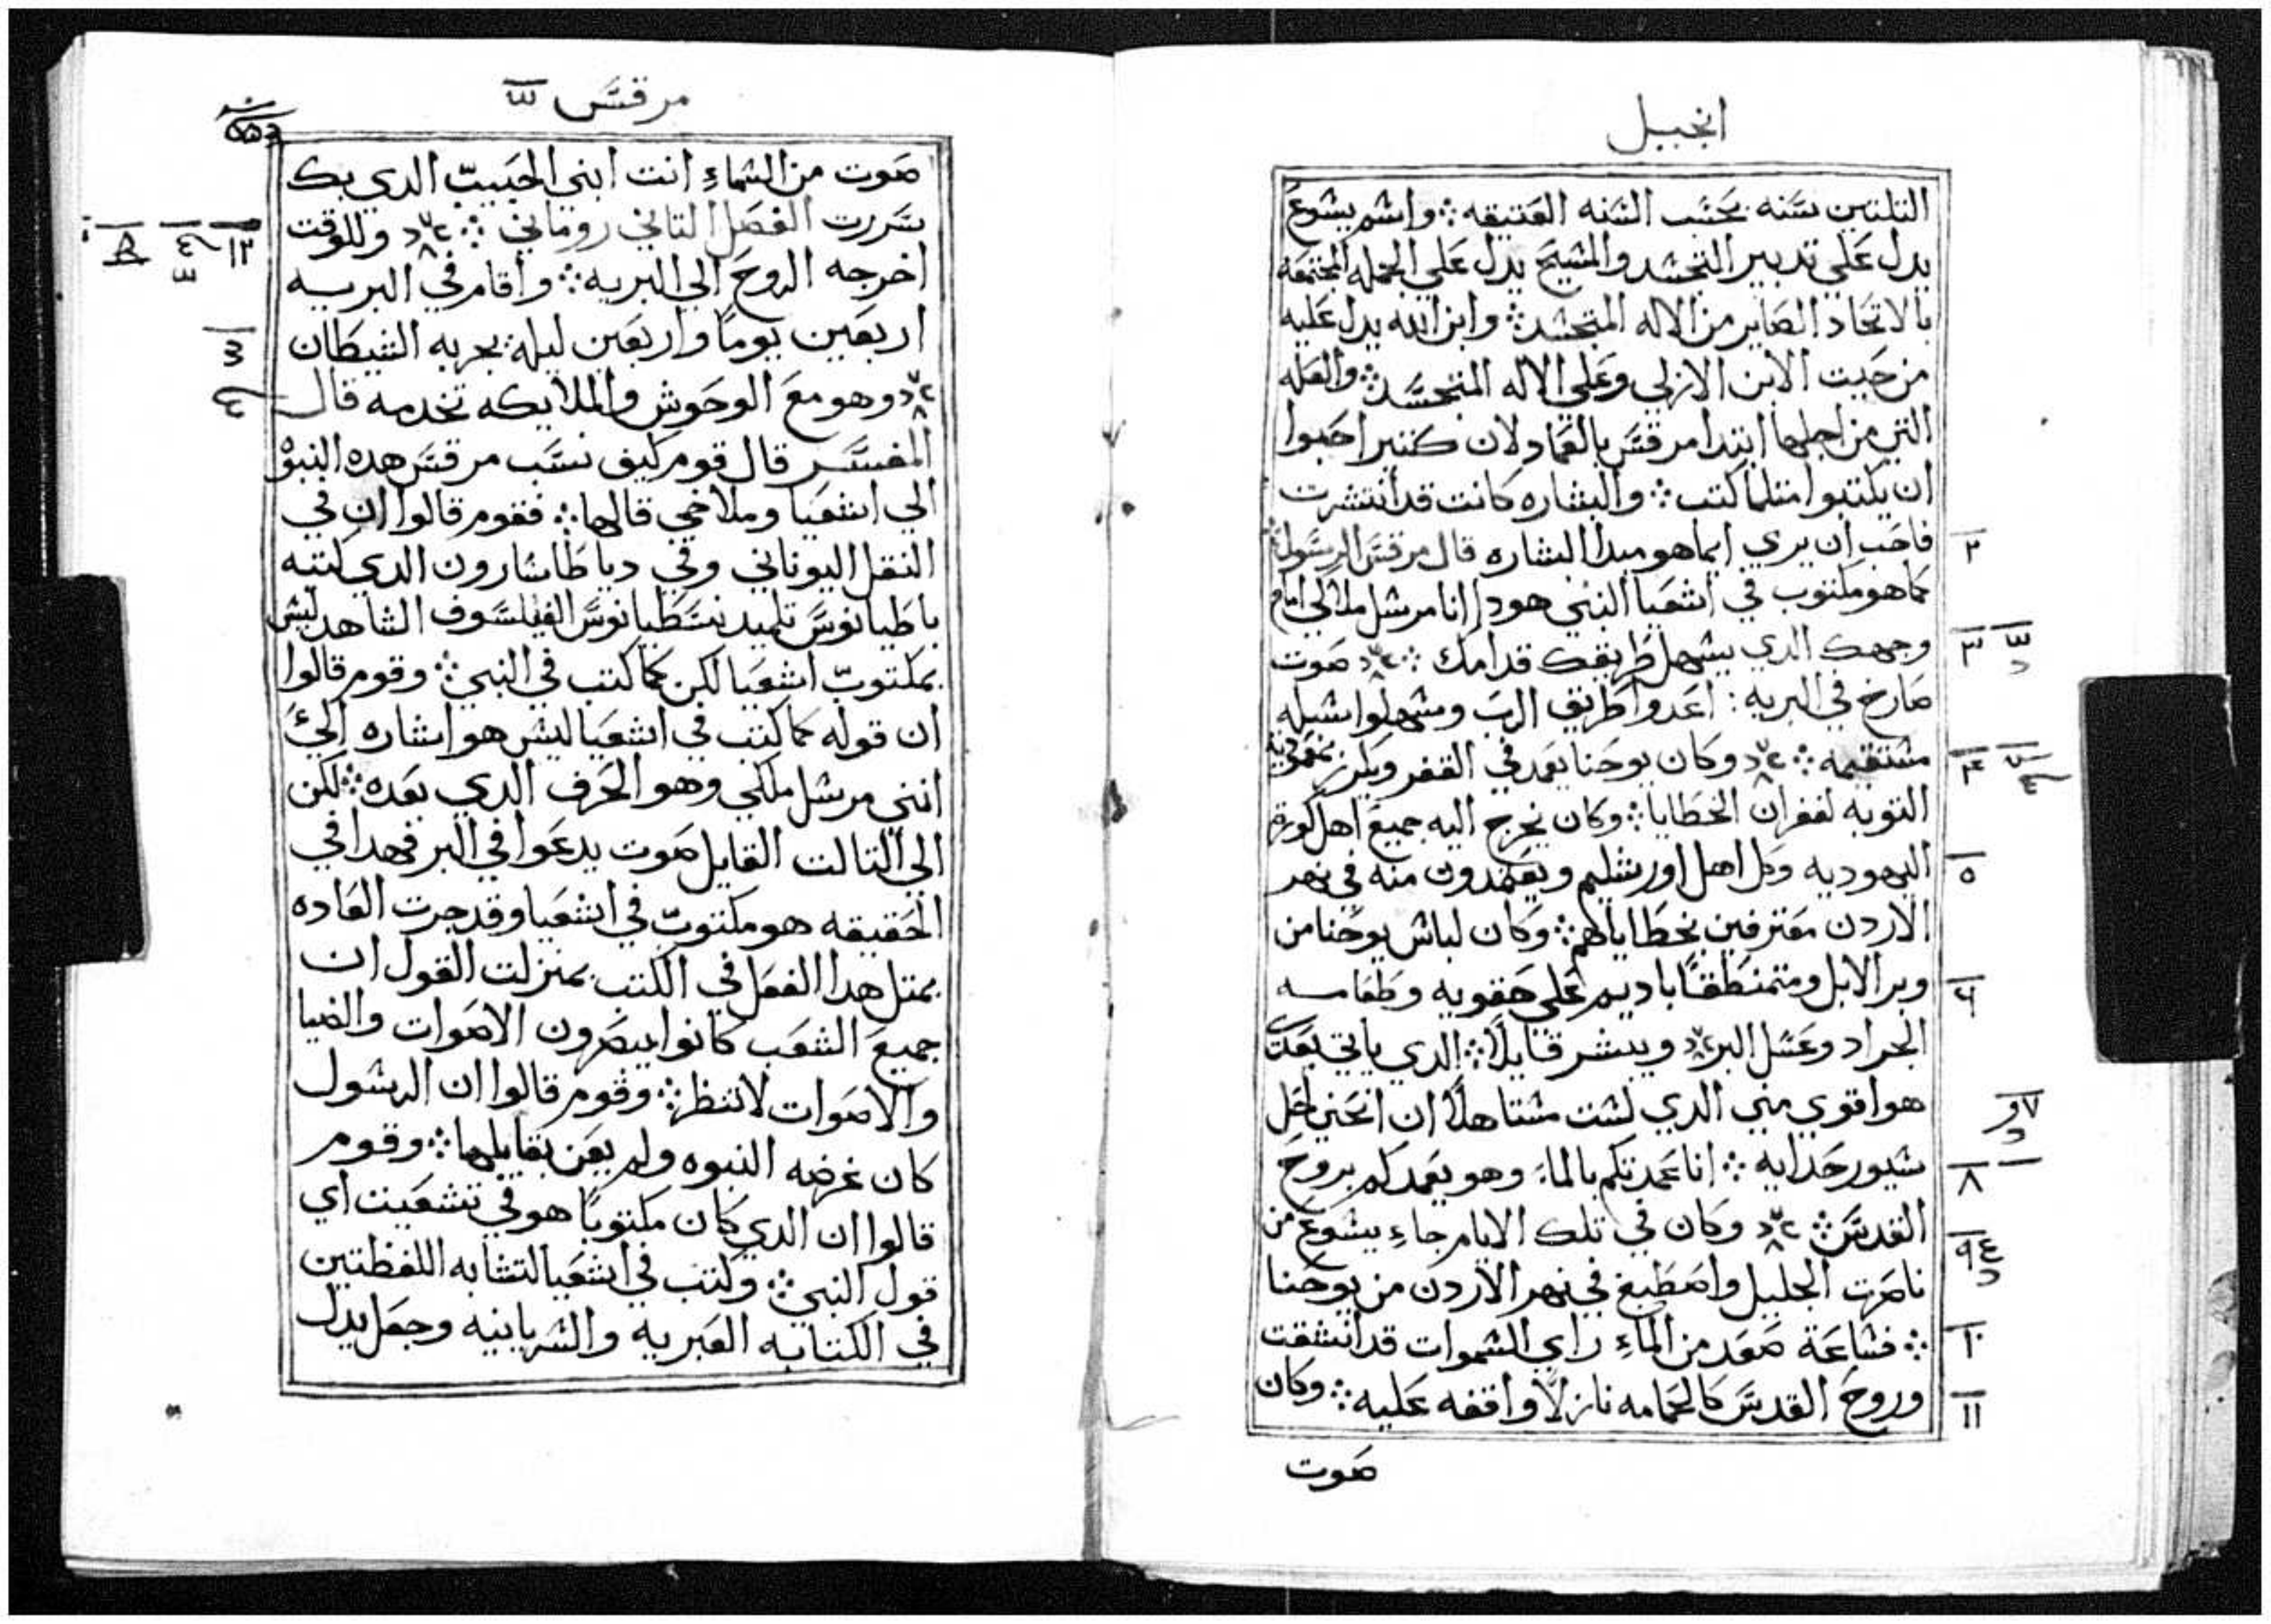 انجيل
التلتين سنه بحسب السنه العتيقه ⁘ واسم يشوع
يدل علي تدبير التجسد والمسيح يدل علي الجمله المجتمعه
بالاتحاد الصاير من الاله المتجسد ⁘ وابن الله يدل عليه
من حيت الابن الازلي وعلي الاله المتجسد ⁘ والعله
التي من اجلها ابتدا مرقس بالعماد لان كتير احبوا
ان يكتبوا متلما كتب ⁘ والبشاره كانت قد انتشرت
فاحب ان يري ايما هو مبدا البشاره قال مرقس الرسول ⁘
٢
كما هو مكتوب في اشعيا النبي هودا انا مرسل ملاكي امام
وجهك الدي يسهل طريقك قدامك ⁘ صوت
٣
صارخ في البريه : اعدوا طريق الرب وسهلوا سبله
مستقيمه ⁘ وكان يوحنا يعمد في القفر ويكرز بمعموديه
٤
التوبه لغفران الخطايا ⁘ وكان يخرج اليه جميع اهل كورة
اليهوديه وكل اهل اورشليم ويعتمدون منه في نهر
٥
الاردن معترفين بخطاياهم ⁘ وكان لباس يوحنا من
وبر الابل ومتمنطقًا باديم علي حقويه وطعامه
٦
الجراد وعسل البر ويبشر قايلًا ⁘ الدي ياتي بعدي
هو اقوي مني الدي لست مستاهلًا ان انحني احل
٧
سيور حدايه ⁘ انا عمدتكم بالماء وهو يعمدكم بروح
٨
القدس ⁘ وكان في تلك الايام جاء يسوع من
٩
ناصرت الجليل واصطبغ في نهر الاردن من يوحنا
⁘ فساعة صعد من الماء راي السموات قد انشقت
١٠
وروح القدس كالحمامه نازلًا واقفه عليه ⁘ وكان
١١
صوت
مرقس
صوت من السماء انت ابني الحبيب الدي بك
سررت الفصل التاني روماني ⁘ وللوقت
١٢
اخرجه الروح الي البريه ⁘ واقام في البريه
اربعين يومًا واربعين ليله يجربه الشيطان
وهو مع الوحوش والملايكه تخدمه قال
المفسر قال قوم كيف نسب مرقس هده النبوة
الي اشعيا وملاخي قالها ⁘ فقوم قالوا ان في
النقل اليوناني وفي دياطاسارون الدي كتبه
باطيانوس تلميد يسطيانوس الفيلسوف الشاهد ليس
بمكتوب اشعيا لكن كما كتب في النبي ⁘ وقوم قالوا
ان قوله كما كتب في اشعيا ليس هو اشاره الي
انني مرسل ملاكي وهو الحرف الدي بعده ⁘ لكن
الي التالت القايل صوت يدعوا في البر فهدا في
الحقيقه هو مكتوب في اشعيا وقد جرت العاده
بمتل هدا الفعل في الكتب بمنزلت القول ان
جميع الشعب كانوا يبصرون الاصوات والضيا
والاصوات لا تنظر ⁘ وقوم قالوا ان الرسول
كان غرضه النبوه ولم يعن بقايلها ⁘ وقوم
قالوا ان الدي كان مكتوبًا هو في تشعيت اي
قول النبي ⁘ وكتب في اشعيا لتشابه اللفظتين
في الكتابه العبريه والسريانيه وجعل يدل